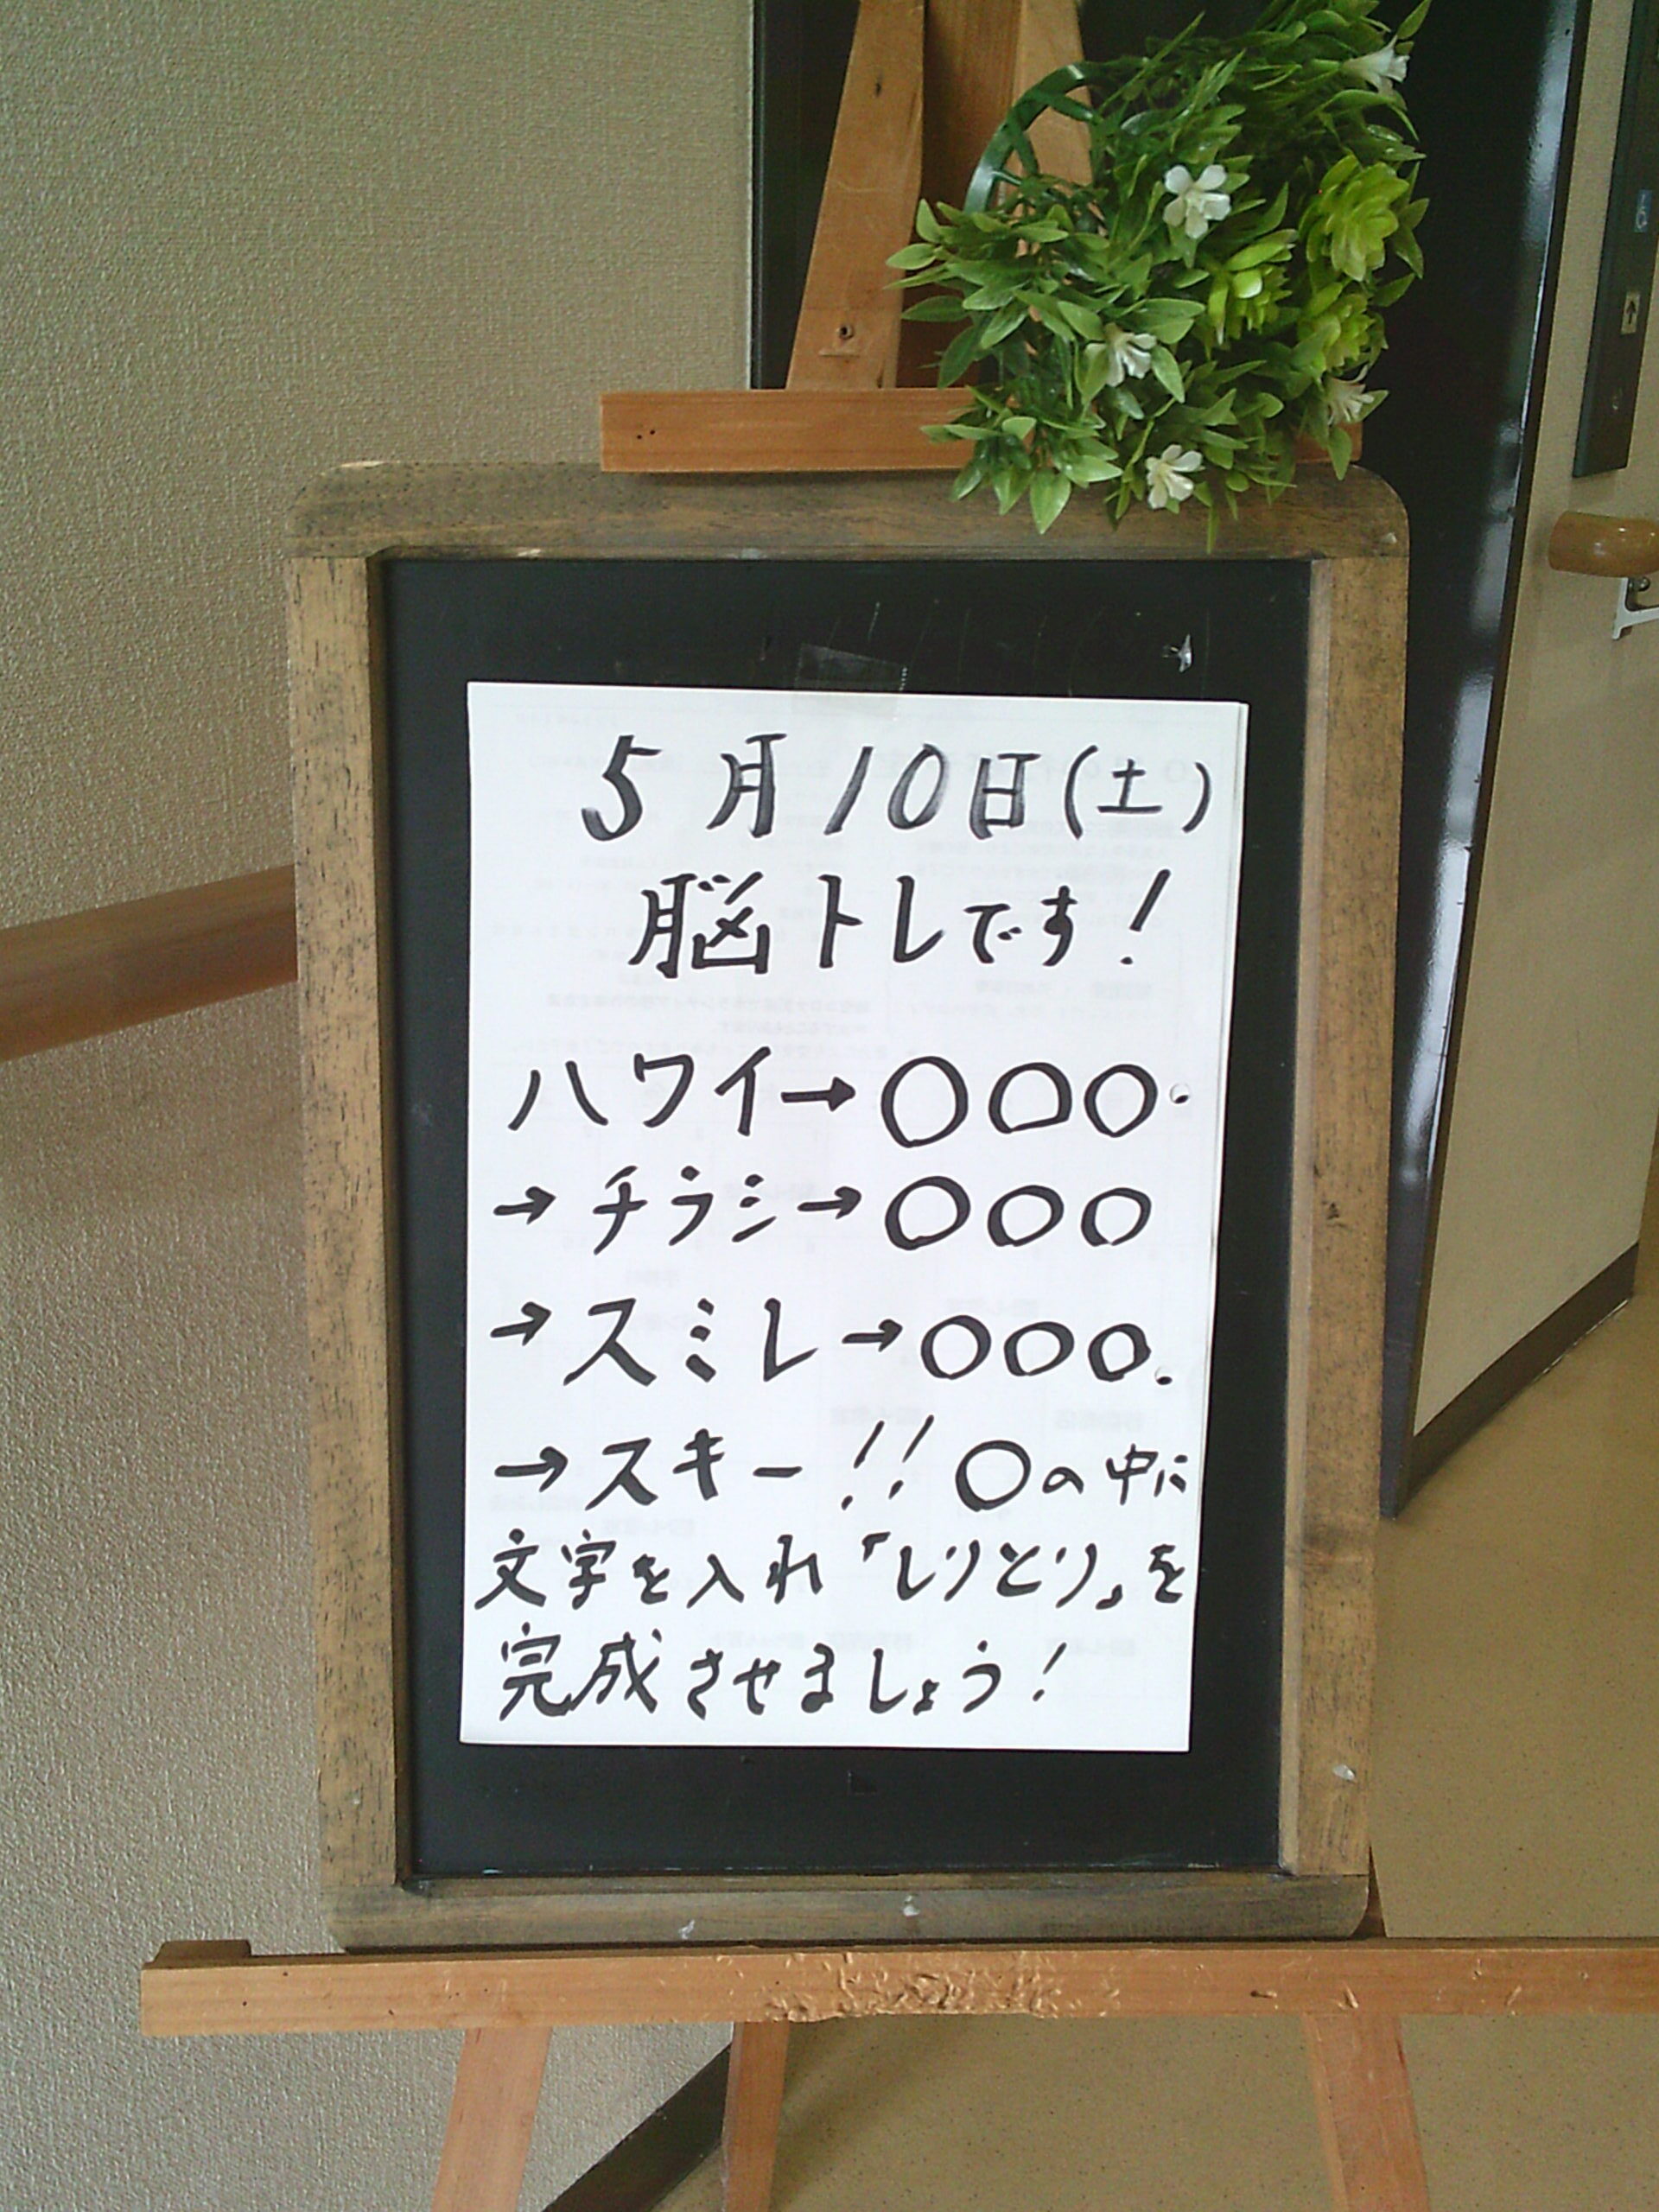 5月10日(土)
脳トレです!
ハワイ→○○○
→チラシ→○○○
→スミレ→○○○
→スキー!!○の中に
文字を入れ「しりとり」を
完成させましょう!